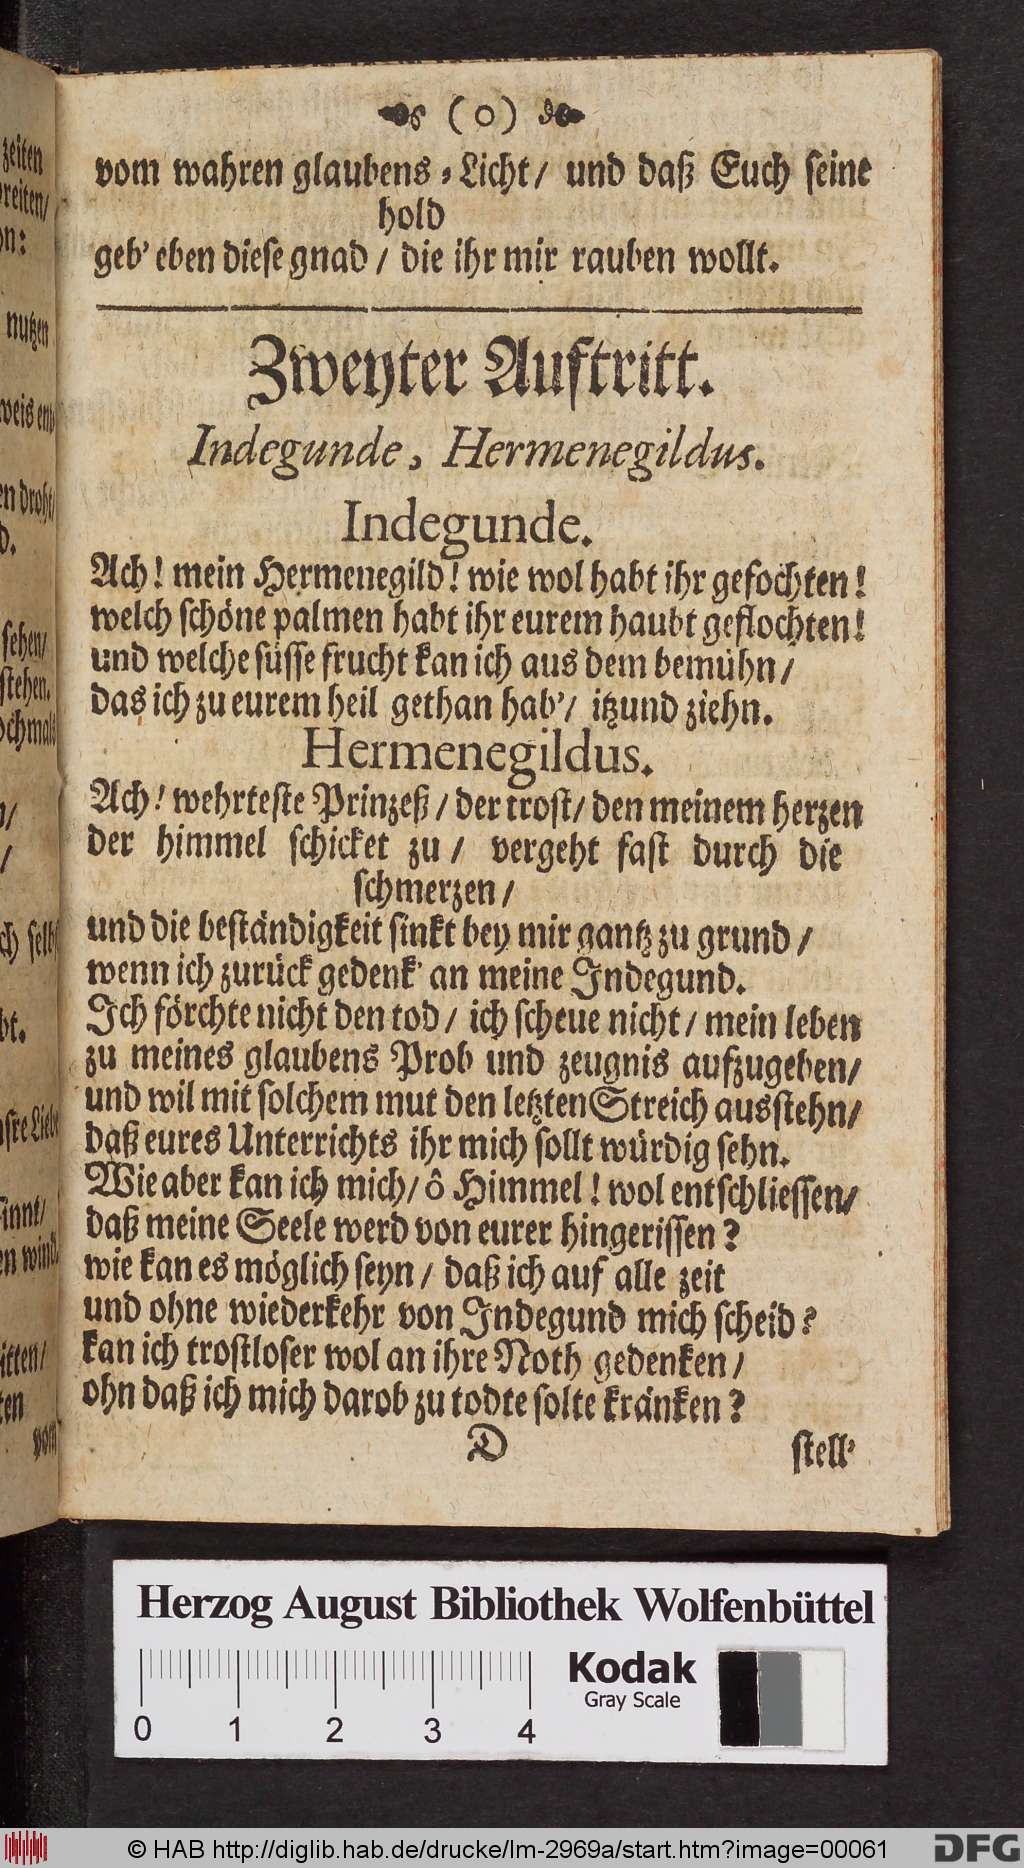 (o)
vom wahren glaubens-Licht/ und daß Euch seine
hold
geb' eben diese gnad/ die ihr mir rauben wollt.
Zweyter Auftritt.
Indegunde, Hermenegildus.
Indegunde.
Ach! mein Hermenegild! wie wol habt ihr gefochten!
welch schöne palmen habt ihr eurem haubt geflochten!
und welche süsse frucht kan ich aus dem bemühn/
das ich zu eurem heil gethan hab'/ itzund ziehn.
Hermenegildus.
Ach! wehrteste Prinzeß/ der trost/ den meinem herzen
der himmel schicket zu/ vergeht fast durch die
schmerzen/
und die beständigkeit sinkt bey mir gantz zu grund/
wenn ich zurück gedenk' an meine Indegund.
Ich förchte nicht den tod/ ich scheue nicht/ mein leben
zu meines glaubens Prob und zeugnis aufzugeben/
und wil mit solchem mut den letzten Streich ausstehn/
daß eures Unterrichts ihr mich sollt würdig sehn.
Wie aber kan ich mich/ ô Himmel! wol entschliessen/
daß meine Seele werd von eurer hingerissen?
wie kan es möglich seyn/ daß ich auf alle zeit
und ohne wiederkehr von Indegund mich scheid?
kan ich trostloser wol an ihre Noth gedenken/
ohn daß ich mich darob zu todte solte kränken?
D stell'
Herzog August Bibliothek Wolfenbüttel
Kodak
Gray Scale
0 1 2 3 4
© HAB http://diglib.hab.de/drucke/lm-2969a/start.htm?image=00061
DFG